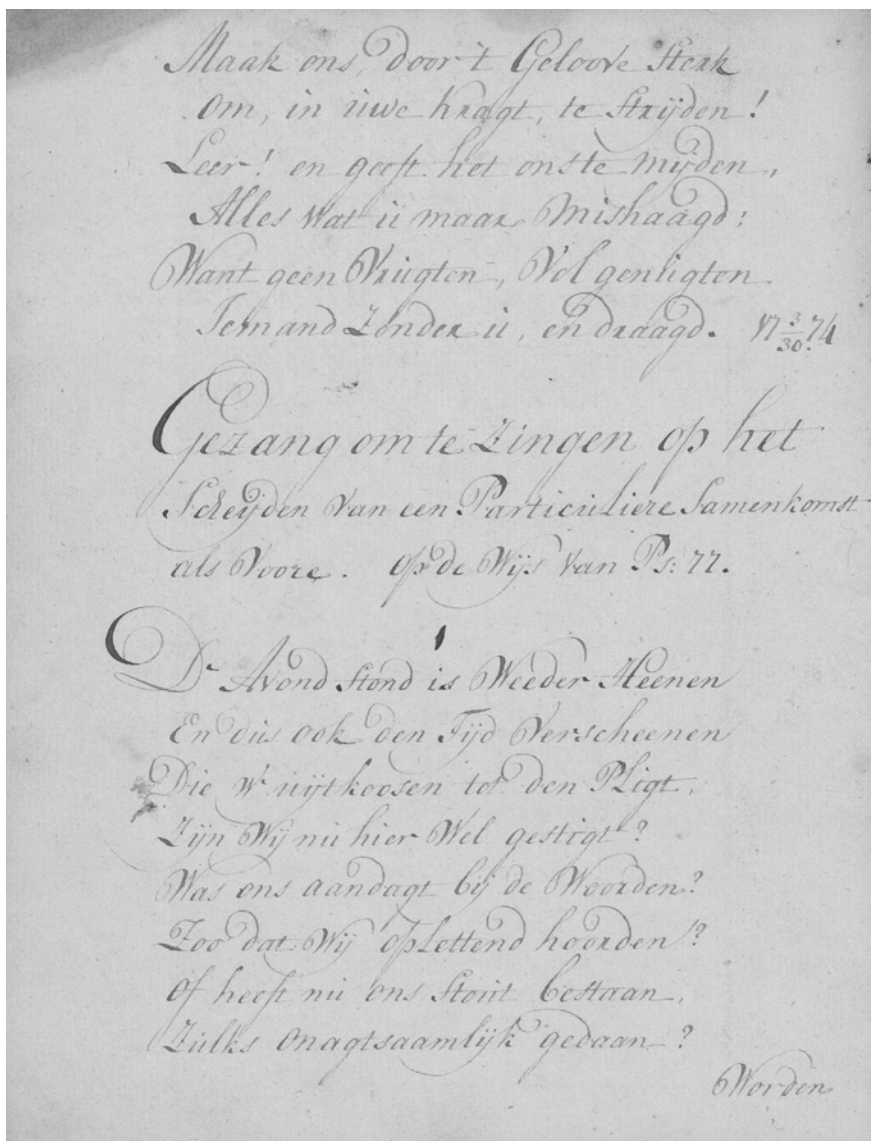 Maak ons, door 't Geloove sterk
om, in uwe kragt, te strijden!
Leer! en geeft het ons te mijden,
Alles wat u maar mishaagd:
Want geen Vrugten, Vol genugten
Iemand Zonder u, en draagd. 17 3/30 74
Gezang om te Zingen op het
Scheijden van een Particuliere Samenkomst
als Voore. Op de Wijs van Ps: 77.
1
D' Avond stond is Weeder Heenen
En dus ook den Tijd Verscheenen
Die w' uijtkoosen tot den Pligt,
Zijn Wij nu hier Wel gestigt?
Was ons aandagt bij de Woorden?
Zoo dat Wij oplettend hoorden!?
Of heeft nu ons stout bestaan,
Zulks onagtsaamlijk gedaan?
Worden